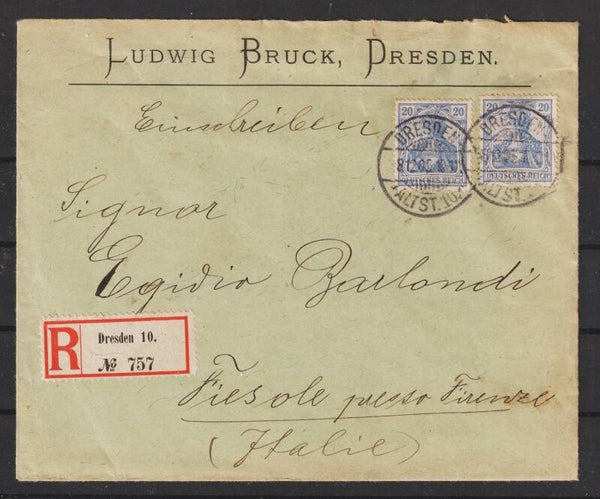 LUDWIG BRUCK, DRESDEN.
Einschreiben
20 20
20 20
DEUTSCHES REICH
DEUTSCHES REICH
DRESDEN
ALTST. 10.
DRESDEN
ALTST.
Signor
Egidio Barlondi
R
Dresden 10.
№ 757
Fiesole presso Firenze
(Italie)